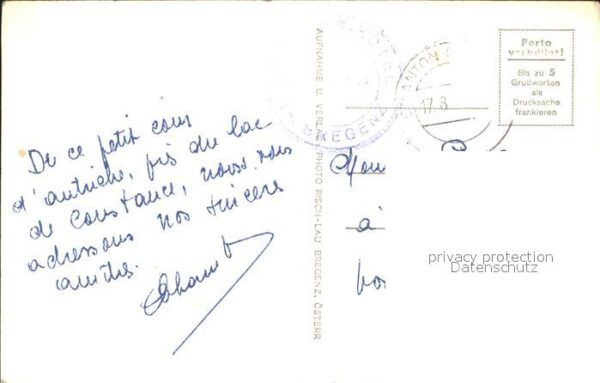 De ce petit coin
d'autriche, près du lac
de Constance, nous vous
adressons nos sincères
amitiés.
AUFNAHME U. VERLAG PHOTO RISCH-LAU BREGENZ, ÖSTERR
BREGENZ
ANTON
17.8.
Porto
verbilligt!
Bis zu 5
Grußworten
als
Drucksache
frankieren
à
privacy protection
Datenschutz